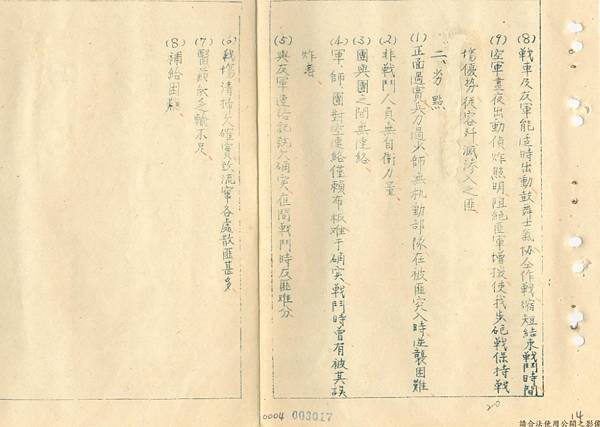 (8)戰車及友軍能適時出動鼓舞士氣協仝作戰縮短結束戰鬥時間
(9)空軍晝夜出動偵炸照明阻絕匪軍增援使我步砲戰保持戰
場優勢從容歼滅滲入之匪
二、劣點
(1)正面過寬兵力過少師無机動部隊在被匪突入時逆襲困難
(2)非戰鬥人員無自衛力量
(3)團與團之間無連絡
(4)軍、師、團對空連絡僅賴布板难于确实戰鬥時曾有被其誤
炸者
(5)與友軍連絡記號欠确实夜間戰鬥時友匪难分
(6)戰場清掃欠確實致流竄各處散匪甚多
(7)醫药欠乏輸不足
(8)補給困難
20
0004 003017
14
請合法使用公開之影像